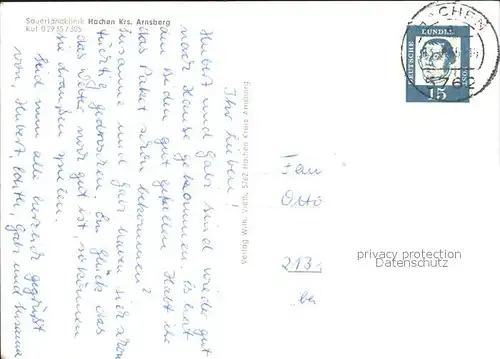 Sauerlandklinik Hachen Krs. Arnsberg
Ruf 02935/305
Ihr Lieben!
Hubert und Gabi sind wieder gut
nach Hause gekommen. Es hat
den Beiden gut gefallen. Habt ihr
das Paket schon bekommen?
Susanne und Gabi haben sich schon
tüchtig gedroschen. Ein Glück das
das Wetter noch gut ist, so können
sie draußen spielen.
Seid nun alle herzlich gegrüßt
von, Hubert, Gabi und Susanne
Verlag Wilh. Vieth, 5762 Hachen Kreis Arnsberg
HACHEN
576
DEUTSCHE
BUNDESPOST
15
Frau
Otto
213
bei
privacy protection
Datenschutz